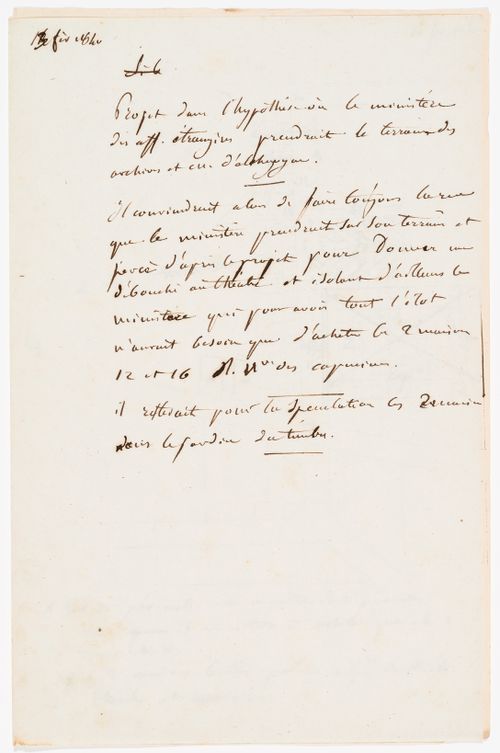 fév 1840
Projet dans l'hypothèse où le ministère
des aff. étrangères prendrait le terrain des
archives et
Il conviendrait alors de faire toujours la rue
que le ministère prendrait sur son terrain et
percée d'après le projet pour Donner un
débouché au théâtre et isolant d'ailleurs le
ministère qui pour avoir tout l'ilot
n'aurait besoin que d'acheter les 2 maisons
12 et 16 R. Nve des capucines.
il resterait pour la spéculation les 2 maisons
dans le jardin du timbre.